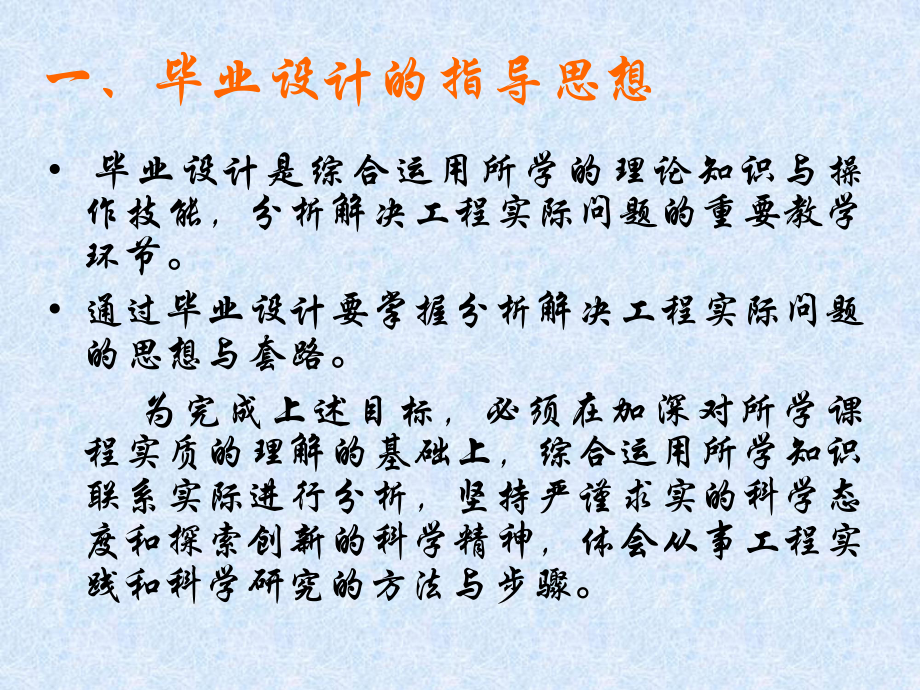 一、毕业设计的指导思想
• 毕业设计是综合运用所学的理论知识与操
作技能，分析解决工程实际问题的重要教学
环节。
• 通过毕业设计要掌握分析解决工程实际问题
的思想与套路。
为完成上述目标，必须在加深对所学课
程实质的理解的基础上，综合运用所学知识
联系实际进行分析，坚持严谨求实的科学态
度和探索创新的科学精神，体会从事工程实
践和科学研究的方法与步骤。